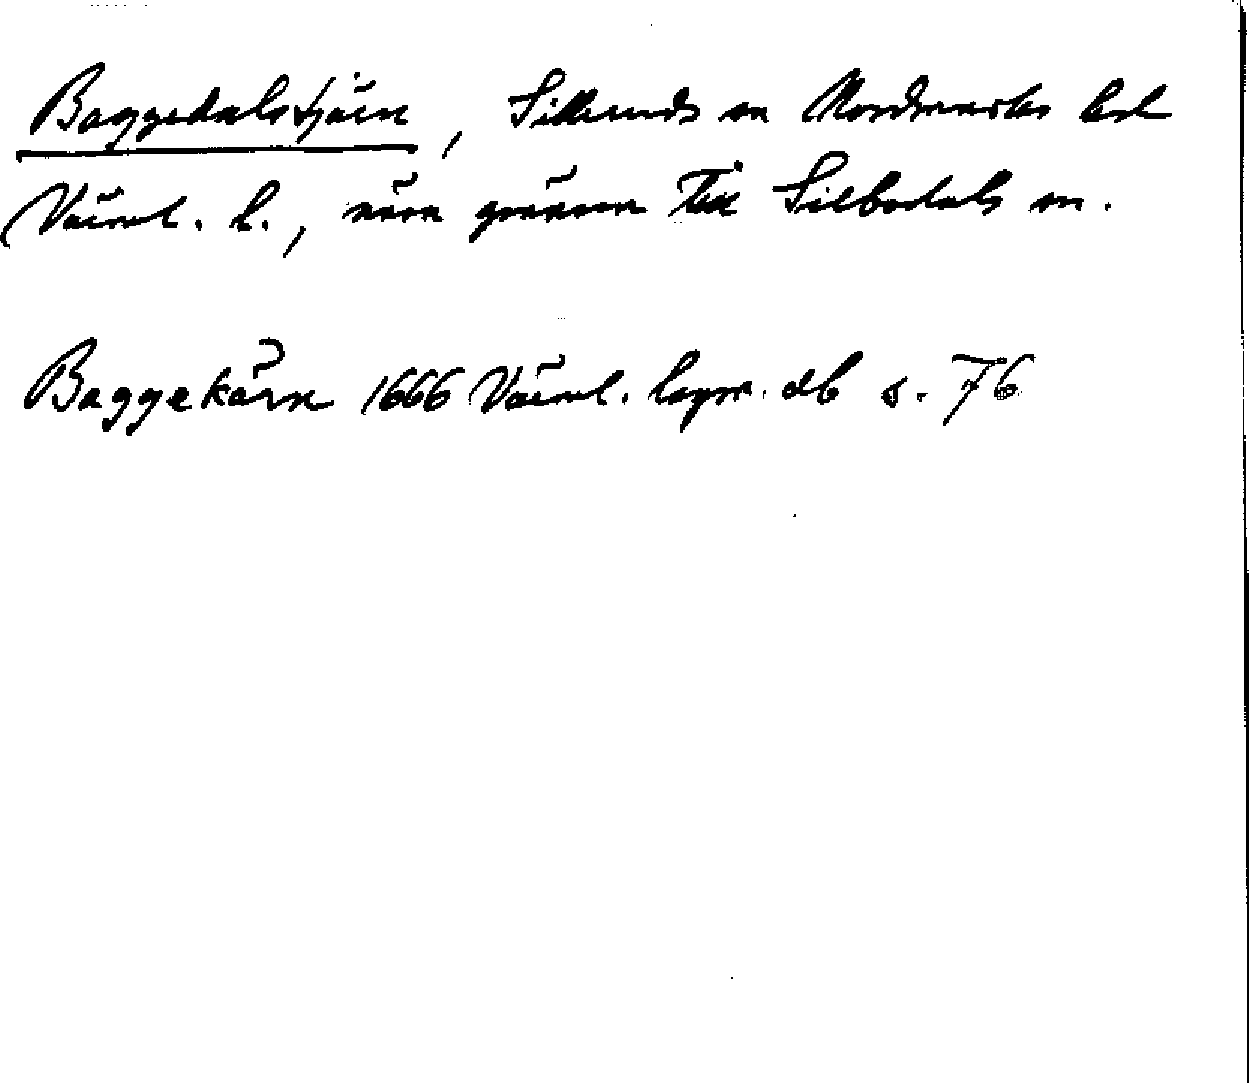 Baggedalstjärn, Sillerud sn Nordmarks hd
Värml. l., nära gränsen till Silbodals sn.
Baggekärn 1666 Värml. lagm. db s. 76